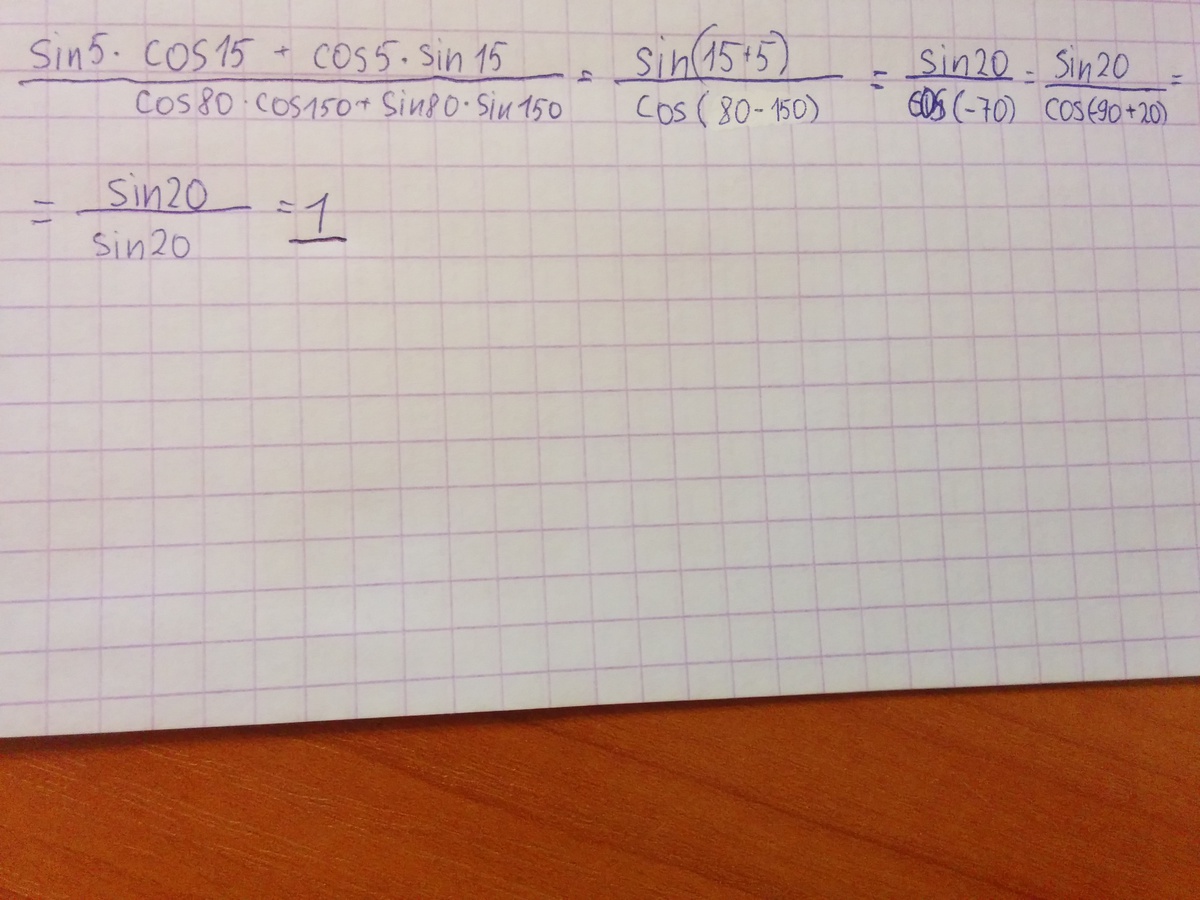 sin5· cos15 + cos5·sin15 / cos80·cos150+sin80·sin150 = sin(15+5) / cos(80-150) = sin20 / cos(-70) = sin20 / cos(-90+20) =
= sin20 / sin20 = 1